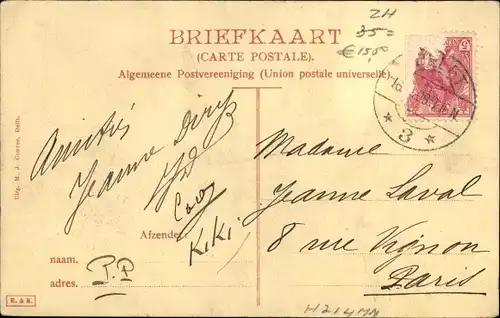 ZH
35=
€ 15,00
BRIEFKAART
(CARTE POSTALE).
Algemeene Postvereeniging (Union postale universelle).
* 3 *
Amitiés
Jeanne
Coos
Kiki
Madame
Jeanne Laval
8 rue Vignon
Paris
Afzender:
naam.
adres. P.P
Uitg. M. J. Couvee, Delft.
R. & R.
H214MN